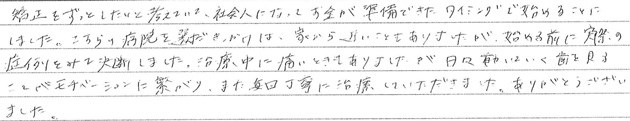 矯正をずっとしたいと考えていて、社会人になってお金が準備できたタイミングで始めることに
しました。こちらの病院を選んだきっかけは、家から近いこともありましたが、始める前に実際の
症例をみて決断しました。治療中に痛いときもありましたが日々動いていく歯を見る
ことがモチベーションに繋がり、また毎回丁寧に治療していただきました。ありがとうござい
ました。